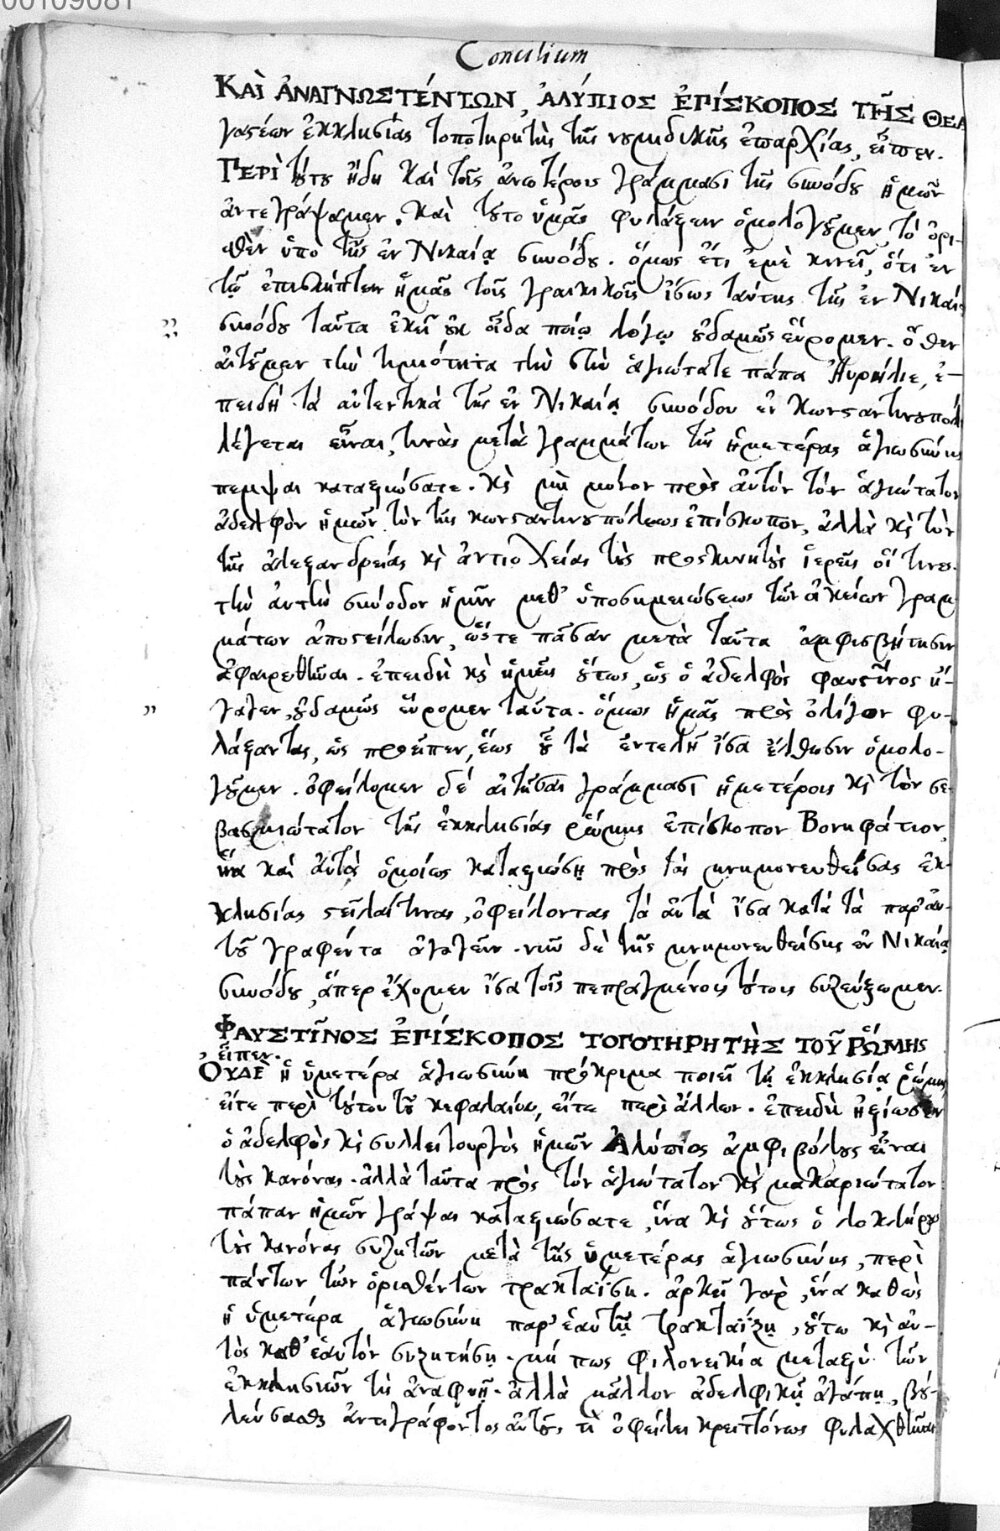 00109081
Concilium
ΚΑῚ ἈΝΑΓΝΩΣΤΈΝΤΩΝ, ἈΛΎΠΙΟΣ ἘΠΊΣΚΟΠΟΣ ΤΗ͂Σ ΘΕΑ
γαστέων ἐκκλησίας τοποτηρητὴς τῆς νουμιδικῆς ἐπαρχίας, εἶπεν.
ΠΕΡῚ τούτου ἤδη καὶ τοῖς ἀνωτέροις γράμμασι τῆς συνόδου ἡμῶν
ἀντεγράψαμεν. καὶ τοῦτο ὑμᾶς φυλάξειν ὁμολογοῦμεν, τὸ ὁρι-
σθὲν ὑπὸ τῆς ἐν Νικαίᾳ συνόδου. ὅμως ἔτι ἐμὲ κινεῖ, ὅτι ἐν
τῷ ἐπισκήπτειν ἡμᾶς τοῖς γραικικοῖς ἴσως ταύτης τῆς ἐν Νικαίᾳ
συνόδου ταῦτα ἐκεῖ οὐκ οἶδα ποίῳ λόγῳ οὐδαμῶς εὕρομεν. ὅθεν
αἰτοῦμεν τὴν τιμιότητα τὴν σὴν ἁγιώτατε πάπα Αὐρήλιε, ἐ-
πειδὴ τὰ αὐτεντικὰ τῆς ἐν Νικαίᾳ συνόδου ἐν Κωνσταντινουπόλει
λέγεται εἶναι, τινὰς μετὰ γραμμάτων τῆς ἡμετέρας ἁγιωσύνης
πέμψαι καταξιώσατε. κὶ μὴ μόνον πρὸς αὐτὸν τὸν ἁγιώτατον
ἀδελφὸν ἡμῶν τὸν τῆς κωνσταντινουπόλεως ἐπίσκοπον, ἀλλὰ κὶ τὸν
τῆς ἀλεξανδρείας κὶ ἀντιοχείας τοὺς προσκυνητοὺς ἱερεῖς οἵ τινες
τὴν αὐτὴν σύνοδον ἡμῖν μεθ' ὑποσημειώσεως τῶν οἰκείων γραμ
μάτων ἀποστείλωσιν, ὥστε πᾶσαν μετὰ ταῦτα ἀμφισβήτησιν
ἀφαιρεθῆναι. ἐπειδὴ κὶ ἡμεῖς οὕτως, ὡς ὁ ἀδελφὸς φαυστῖνος ἤ-
γαγεν, οὐδαμῶς εὕρομεν ταῦτα. ὅμως ἡμᾶς πρὸς ὀλίγον φυ-
λάξαντας, ὡς προεῖπεν, ἕως οὗ τὰ ἐντελῆ ἴσα ἔλθωσιν ὁμολο-
γοῦμεν. ὀφείλομεν δὲ αἰτῆσαι γράμμασι ἡμετέροις κὶ τὸν σε-
βασμιώτατον τῆς ἐκκλησίας ῥώμης ἐπίσκοπον Βονηφάτιον,
ἵνα καὶ αὐτὸς ὁμοίως καταξιώσῃ πρὸς τὰς μνημονευθείσας ἐκ-
κλησίας στεῖλαί τινας, ὀφείλοντας τὰ αὐτὰ ἴσα κατὰ τὰ παρ' αὐ-
τοῦ γραφέντα ἀγαγεῖν. νῦν δὲ τῆς μνημονευθείσης ἐν Νικαίᾳ
συνόδου, ἅπερ ἔχομεν ἴσα τοῖς πεπραγμένοις τούτοις συζεύξωμεν.
ΦΑΥΣΤΙ͂ΝΟΣ ἘΠΊΣΚΟΠΟΣ ΤΟΠΟΤΗΡΗΤῊΣ ΤΟΥ͂ ῬΏΜΗΣ
εἶπεν.
ΟΥΔΕ ἡ ὑμετέρα ἁγιωσύνη πρόκριμα ποιεῖ τῇ ἐκκλησίᾳ ῥώμης
εἴτε περὶ τούτου τοῦ κεφαλαίου, εἴτε περὶ ἄλλων. ἐπειδὴ ἠξίωσεν
ὁ ἀδελφὸς κὶ συλλειτουργὸς ἡμῶν Ἀλύπιος ἀμφιβόλους εἶναι
τοὺς κανόνας. ἀλλὰ ταῦτα πρὸς τὸν ἁγιώτατον κὶ μακαριώτατον
πάπαν ἡμῶν γράψαι καταξιώσατε, ἵνα κὶ οὕτως ὁλοκλήρους
τοὺς κανόνας συζητῶν μετὰ τῆς ὑμετέρας ἁγιωσύνης, περὶ
πάντων τῶν ὁρισθέντων τρακταΐσῃ. ἀρκεῖ γὰρ, ἵνα καθὼς
ἡ ὑμετέρα ἁγιωσύνη παρ' ἑαυτῇ τρακταΐζῃ, οὕτω κὶ αὐ-
τὸς καθ' ἑαυτὸν συζητήσῃ. μή πως φιλονεικία μεταξὺ τῶν
ἐκκλησιῶν τις ἀναφυῇ. ἀλλὰ μᾶλλον ἀδελφικῇ ἀγάπῃ, βου-
λεύσασθε ἀντιγράφοντος αὐτοῦ, τί ὀφείλει κρειττόνως φυλαχθῆναι